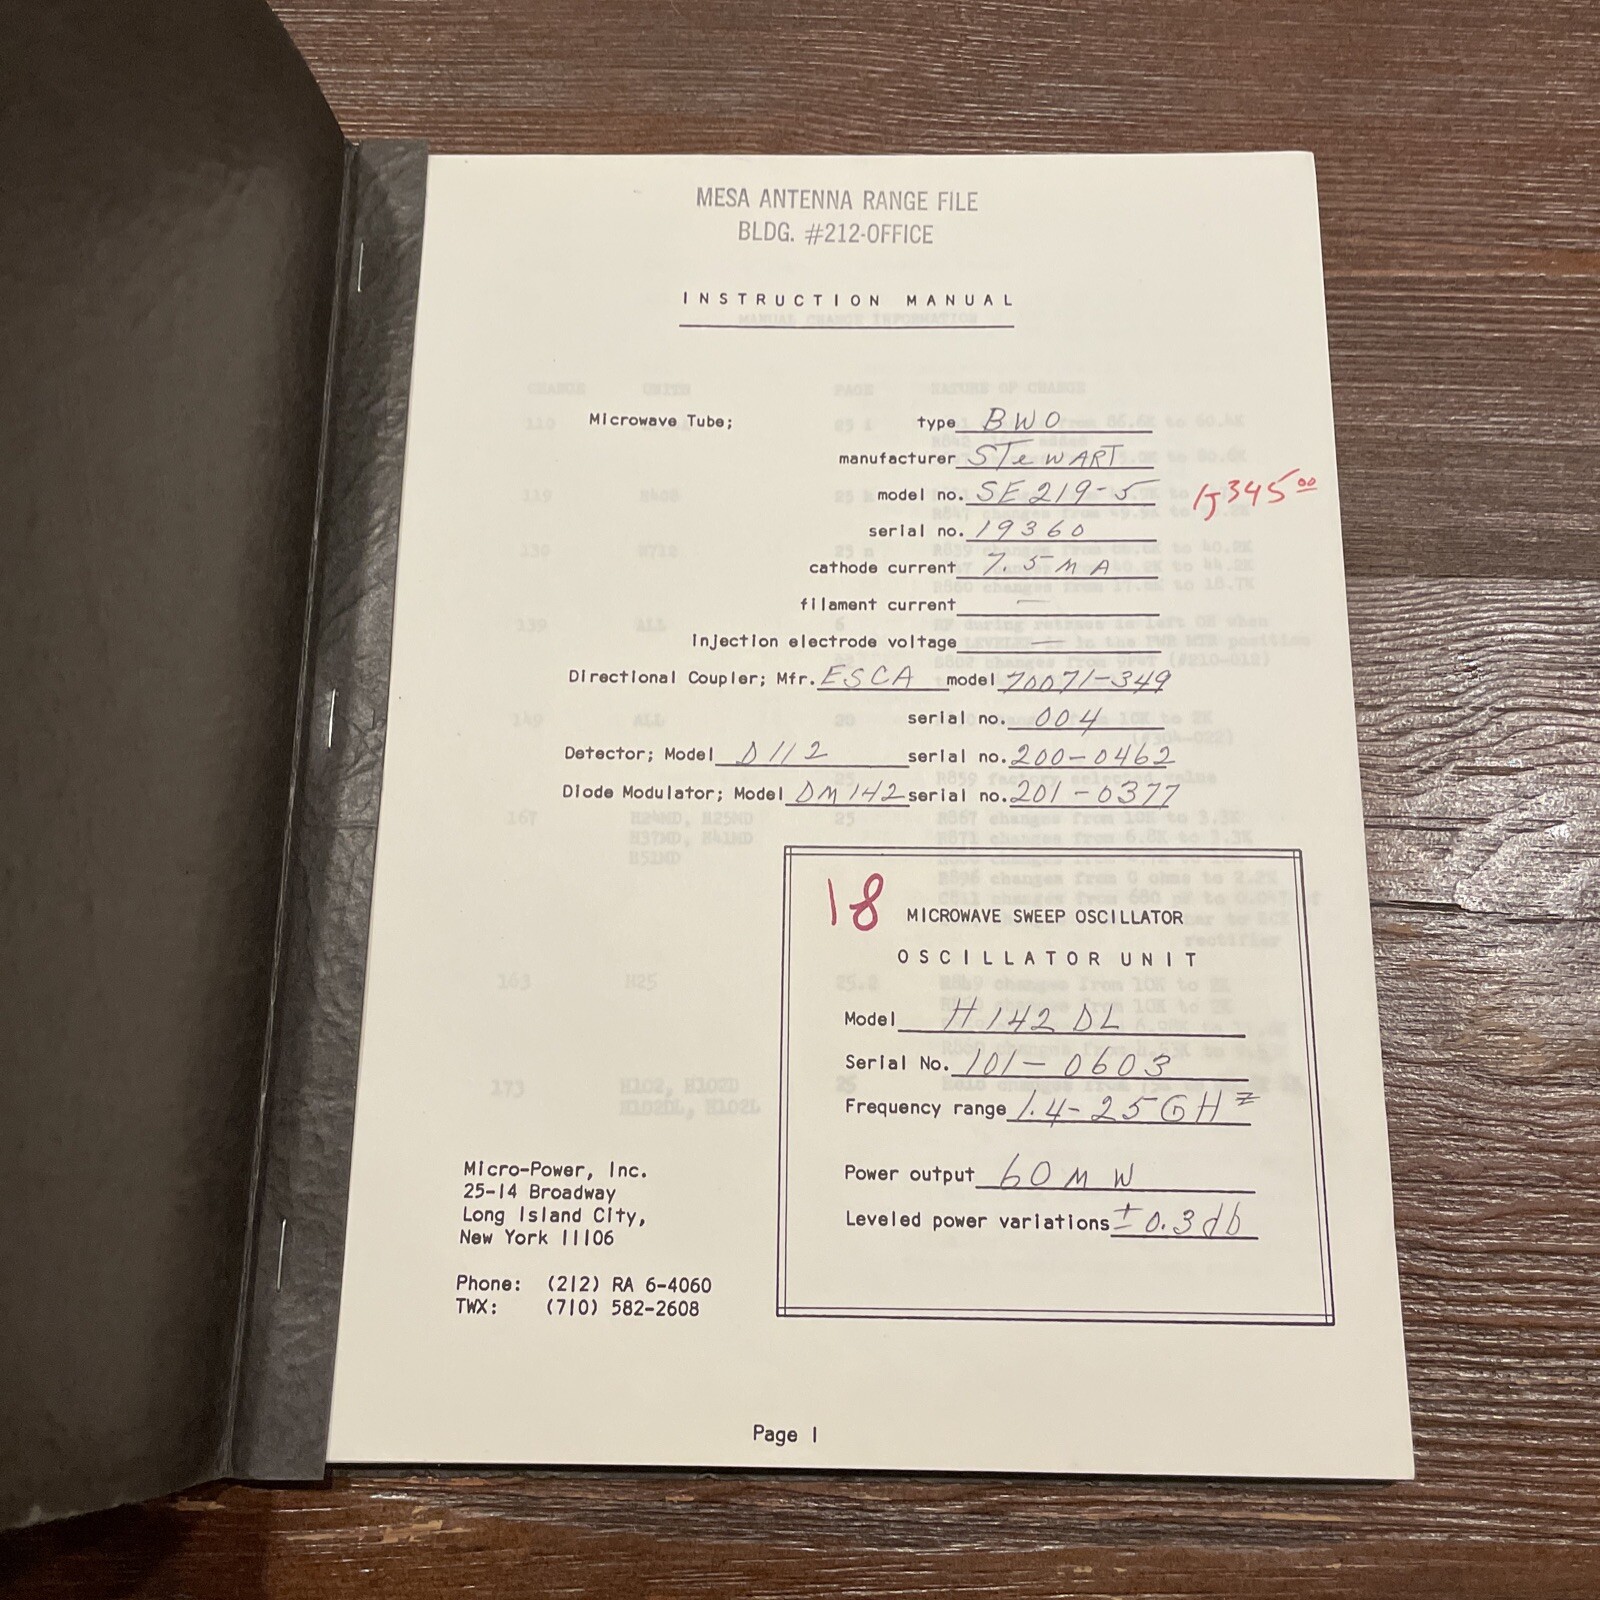 MESA ANTENNA RANGE FILE
BLDG. #212-OFFICE
INSTRUCTION MANUAL
MANUAL CHANGE INFORMATION
CHANGE UNITS PAGE NATURE OF CHANGE
Microwave Tube; type BWO
manufacturer STewART
model no. SE219-5
345 00
serial no. 19360
cathode current 7.5 MA
filament current —
Injection electrode voltage —
Directional Coupler; Mfr. ESCA model 70071-349
serial no. 004
Detector; Model D112 serial no. 200-0462
Diode Modulator; Model DM142 serial no. 201-0377
18
MICROWAVE SWEEP OSCILLATOR
OSCILLATOR UNIT
Model H142 DL
Serial No. 101-0603
Frequency range 1.4-25GHz
Power output 60 MW
Leveled power variations ±0.3db
Micro-Power, Inc.
25-14 Broadway
Long Island City,
New York 11106
Phone: (212) RA 6-4060
TWX: (710) 582-2608
Page 1